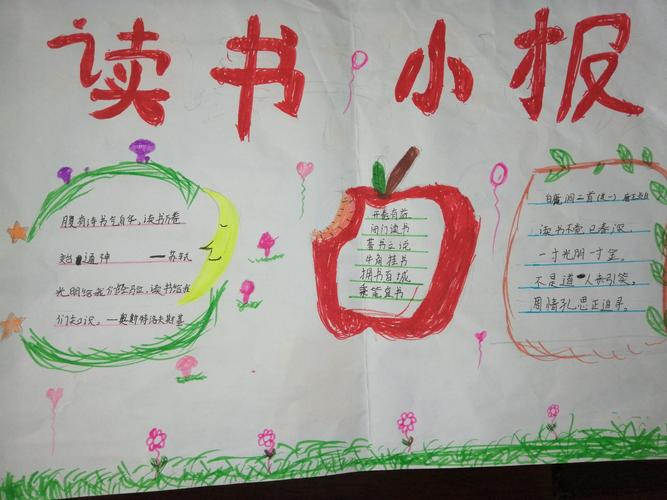 读书小报
腹有诗书气自华，读书万卷
始通神 ——苏轼
光明给我们经验，读书给我
们知识。——奥斯特洛夫斯基
开卷有益
闭门读书
著书立说
牛角挂书
拥书百城
笔直书
白鹿洞二首(其一)
读书不觉已春深，
一寸光阴一寸金。
不是道人来引笑，
周情孔思正追寻。